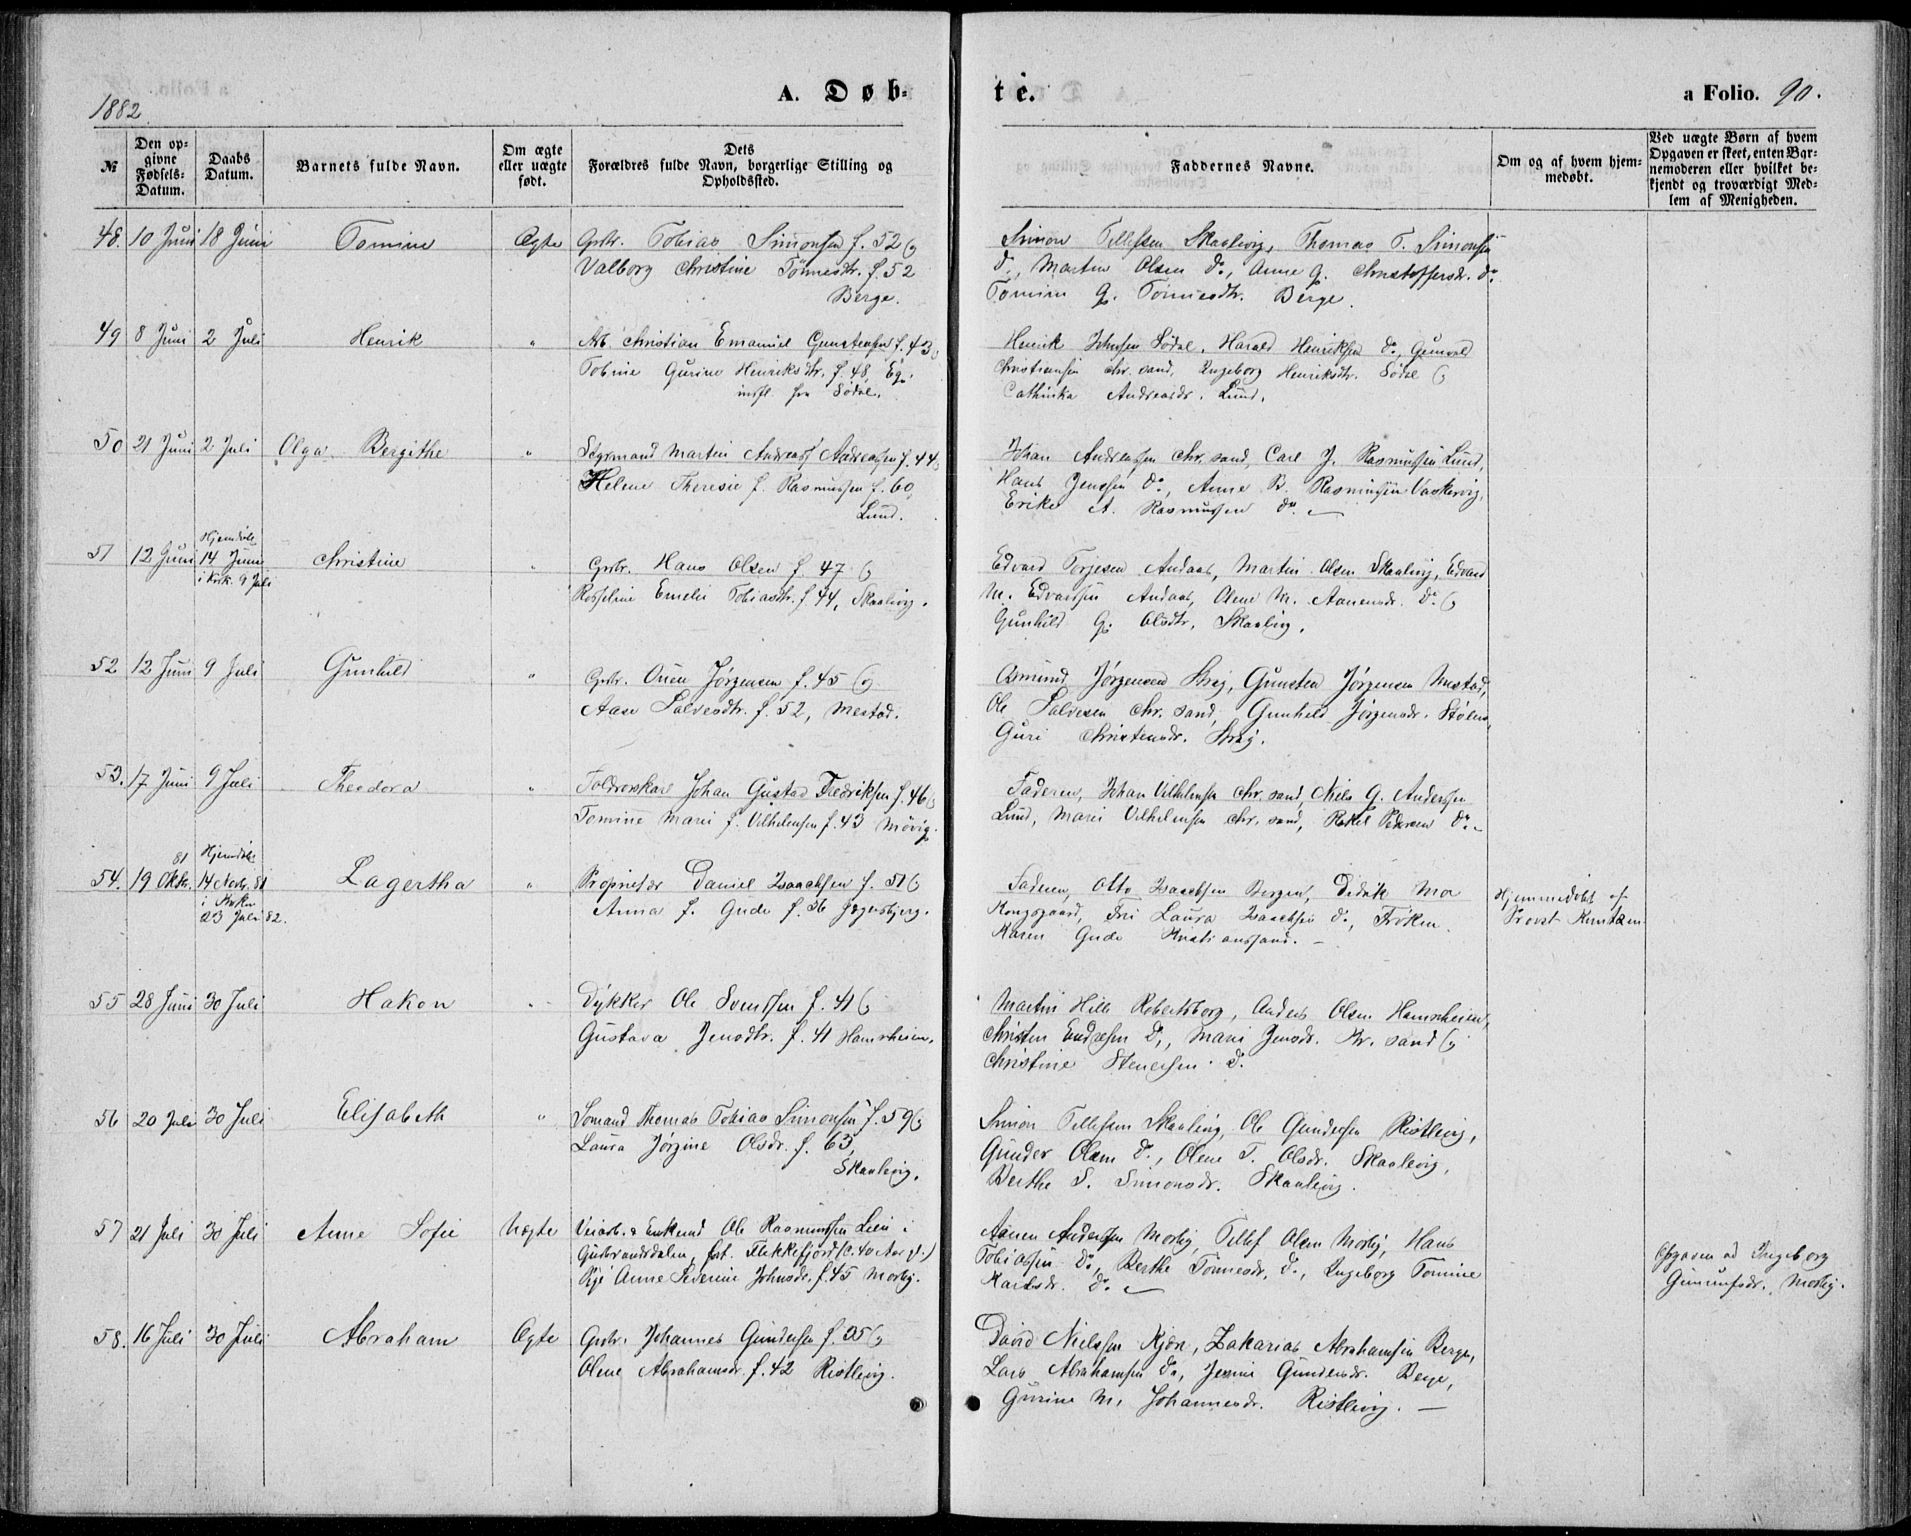 1882
A. Døb-
te.
a Folio. 90.
№
Den op-
givne
Fødsels-
Datum.
Daabs
Datum.
Barnets fulde Navn.
Om ægte
eller uægte
født.
Dets
Forældres fulde Navn, borgerlige Stilling og
Opholdssted.
Faddernes Navne.
Om og af hvem hjem-
medøbt.
Ved uægte Børn af hvem
Opgaven er skeet, enten Bar-
nemoderen eller hvilket be-
kjendt og troværdigt Med-
lem af Menigheden.
48. 10 Juni 18 Juni Tomine Ægte Grbr. Tobias Simonsen f. 52 og
Valborg Christine Tönnesdtr. f. 52
Berge.
Simon Tellefsen Skaalevig, Thomas T. Simonsen
do, Martin Olsen do, Anne G. Christoffersdr. do
Tomine G. Tönnesdtr. Berge.
49 8 Juni 2 Juli Henrik " Arb. Christian Emanuel Gunstensen f. 43 og
Tobine Gurine Henriksdtr. f. 48, Eg.
indfl. fra Södal.
Henrik Johnsen Södal, Harald Henriksen do, Gunvald
Christiansen Chr.sand, Ingeborg Henriksdtr. Södal og
Cathinka Andreasdr. Lund.
50 21 Juni 2 Juli Olga Bergithe " Styrmand Martin Andreas Andreassen f. 44 og
Helene Theresie f. Rasmussen f. 60,
Lund.
Johan Andreassen Chr.sand, Carl J. Rasmussen Lund,
Hans Jenssen do, Anne B. Rasmussen Vaskervig,
Erike A. Rasmussen do.
51 12 Juni Hjemdöbt
14 Juni
i Kirk. 9 Juli Christine " Grbr. Hans Olsen f. 47 og
Rosseline Emelie Tobiasdtr. f. 44, Skaalevig.
Edvard Torjesen Andaas, Martin Olsen Skaalevig, Edvard
M. Edvardsen Andaas, Olene M. Aanensdr. do og
Gunhild G. Olsdtr. Skaalevig.
52 12 Juni 9 Juli Gunhild " Grbr. Ouen Jørgensen f. 45 og
Aase Salvesdtr. f. 52, Mestad.
Asmund Jørgensen Stray, Gunsten Jørgensen Mestad,
Ole Salvesen Chr.sand, Gunhild Jørgensdr. Stølen,
Guri Christensdr. Stray.
53. 17 Juni 9 Juli Theodora " Toldroerskar Johan Gustav Fredriksen f. 46 og
Tomine Marie f. Vilhelmsen f. 43 Møvig.
Faderen, Johan Vilhelmsen Chr.sand, Niels G. Andersen
Lund, Marie Vilhelmsen Chr.sand, Rakel Pedersen do.
54. 19 Oktbr. 81 Hjemdöbt
14 Novbr. 81
i Kirken
23 Juli 82. Lagertha " Proprietær Daniel Isaachsen f. 51 og
Anna f. Gude f. 56 Jegersbjerg.
Faderen, Otto Isaachsen Bergen, Didrik Moe
Kongsgaard, Fru Laura Isaachsen do, Frøken
Karen Gude Kristianssand.
Hjemmedöbt af
Provst
55 28 Juni 30 Juli Hakon " Dykker Ole Svenssen f. 41 og
Gustava Jensdtr. f. 41 Hamreheien.
Martin Hille Robertsborg, Anders Olsen Hamreheien,
Christen Endresen do, Marie Jensdr. Kr.sand og
Christine Stenersen do.
56 20 Juli 30 Juli Elisabeth " Sömand Thomas Tobias Simonsen f. 59 og
Laura Jørgine Olsdr. f. 63,
Skaalevig.
Simon Tellefsen Skaalevig, Ole Gundersen Ristlevig,
Gunder Olsen do, Olene T. Olsdr. Skaalevig,
Berthe S. Simonsdr. Skaalevig.
57 21 Juli 30 Juli Anne Sofie Uægte Veiarb. & Enkemd Ole Rasmussen Lien i
Gudbrandsdalen, fat. Flekkefjord (c. 40 Aar gl.)
Pige Anne Severine Johnsdr. f. 45 Mosby.
Aanen Andersen Mosby, Tellef Olsen Mosby, Hans
Tobiassen do, Berthe Tönnesdr. do, Ingeborg Tomine
Larsdr. do
Opgaven ved Ingeborg
Gunnufsdr. Mosby.
58. 16 Juli 30 Juli Abraham Ægte Grbr. Johannes Gundersen f. 35 og
Olene Abrahamsdr. f. 42 Ristlevig.
David Nielssen Kjær, Zakarias Abrahamsen Berge,
Lars Abrahamsen do, Jenine Gundersdr. Berge,
Gurine M. Johannesdr. Ristlevig.